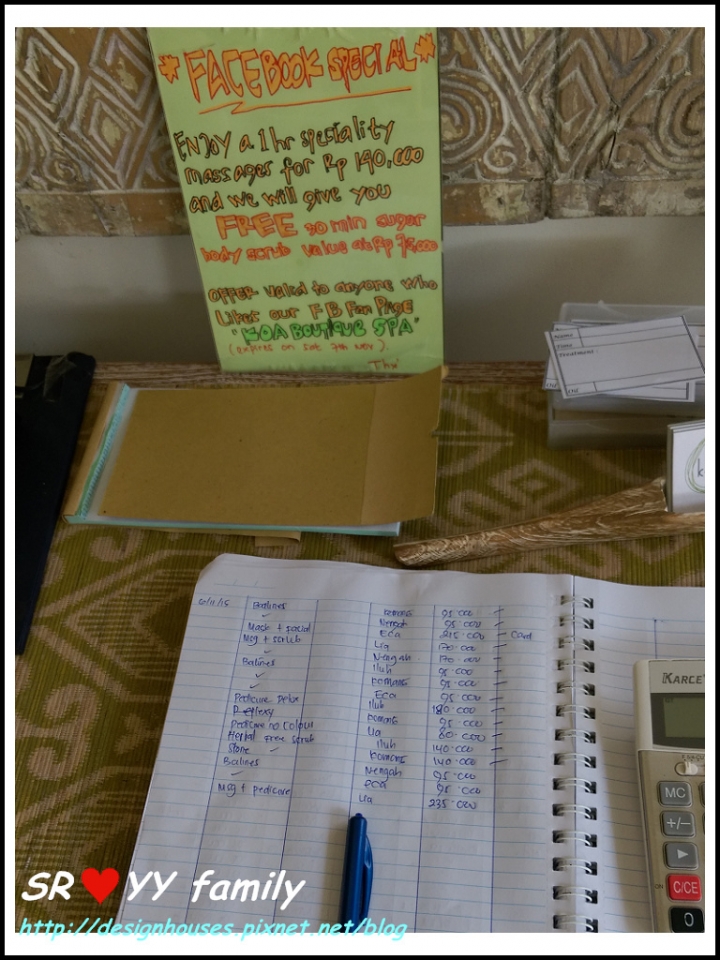 * FACEBOOK SPECIAL *
ENJOY a 1 hr speciality
massages for Rp 140,000
and we will give you
FREE 30 min sugar
body scrub value at Rp 75,000
OFFER valid to anyone who
likes our FB Fan Page
"KOA BOUTIQUE SPA"
(expires on Sat 7th Nov).
Thx
Name
Date
Treatment
Balines 95.000
✓ 95.000
Mask + facial Eca 215.000 – Card
Msg + scrub Lia 170.000
✓ Nengah 170.000
Balines Iluh 95.000
✓ komang 95.000
✓ Eca 95.000
Pedicure Iluh 180.000
komang 95.000
Pedicure no colour Lia 80.000
Herbal Free scrub Iluh 140.000
Stone ✓ komang 140.000
Balines Nengah 95.000
✓ Eca 95.000
Msg + pedicare Lia 235.000
KARCE
MC
+/-
ON C/CE
0
SR♥YY family
http://designhouses.pixnet.net/blog